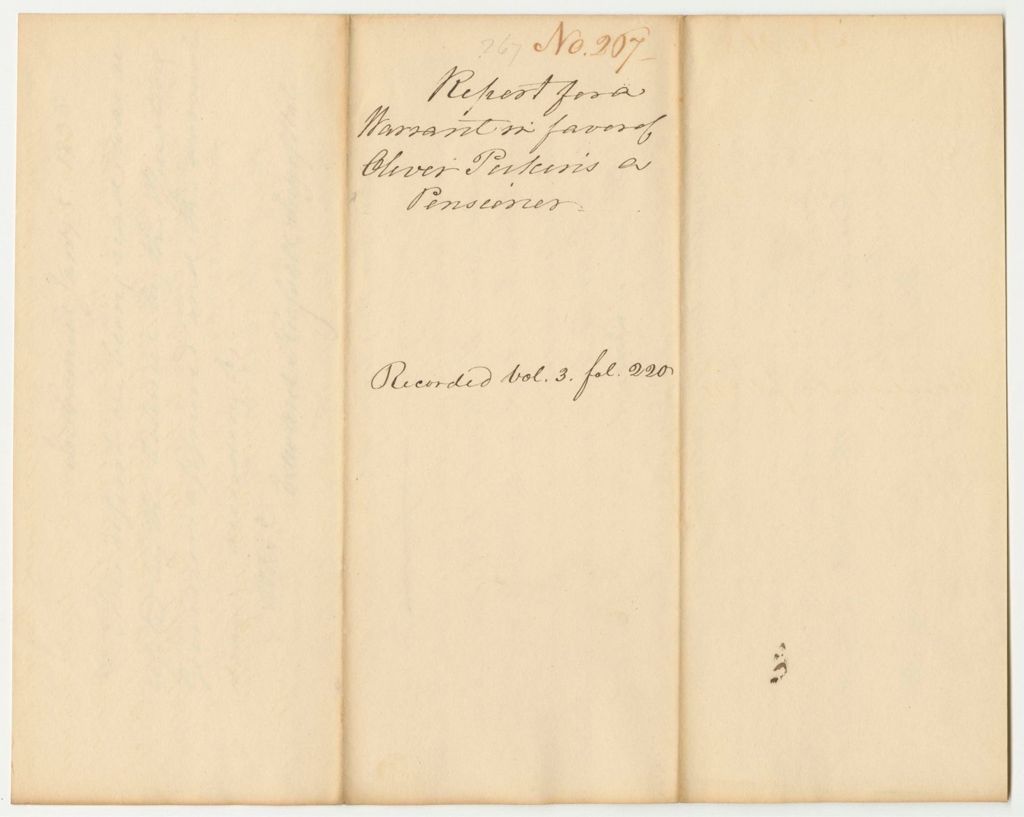 267 No. 267
Report for a
Warrant in favor of
Oliver Perkins a
Pensioner.
Recorded Vol. 3. fol. 220